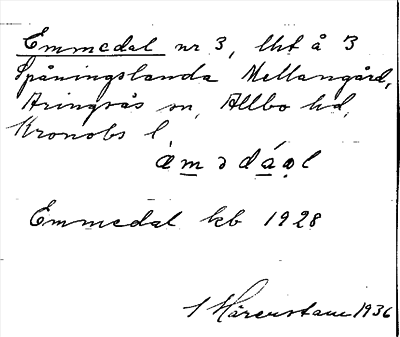 Emmedal nr 3, lht å 3
Spåningslanda Mellangård,
Aringsås sn, Allbo hd,
Kronobs l
æ̀mədáəl
Emmedal kb 1928
Härenstam 1936